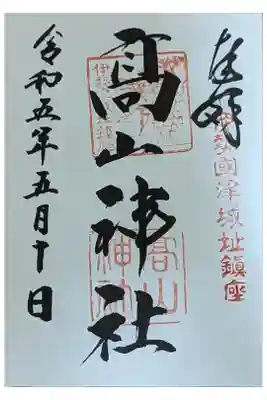 奉拝
伊勢國津城址鎮座
髙山神社
高山
神社
令和五年五月十日